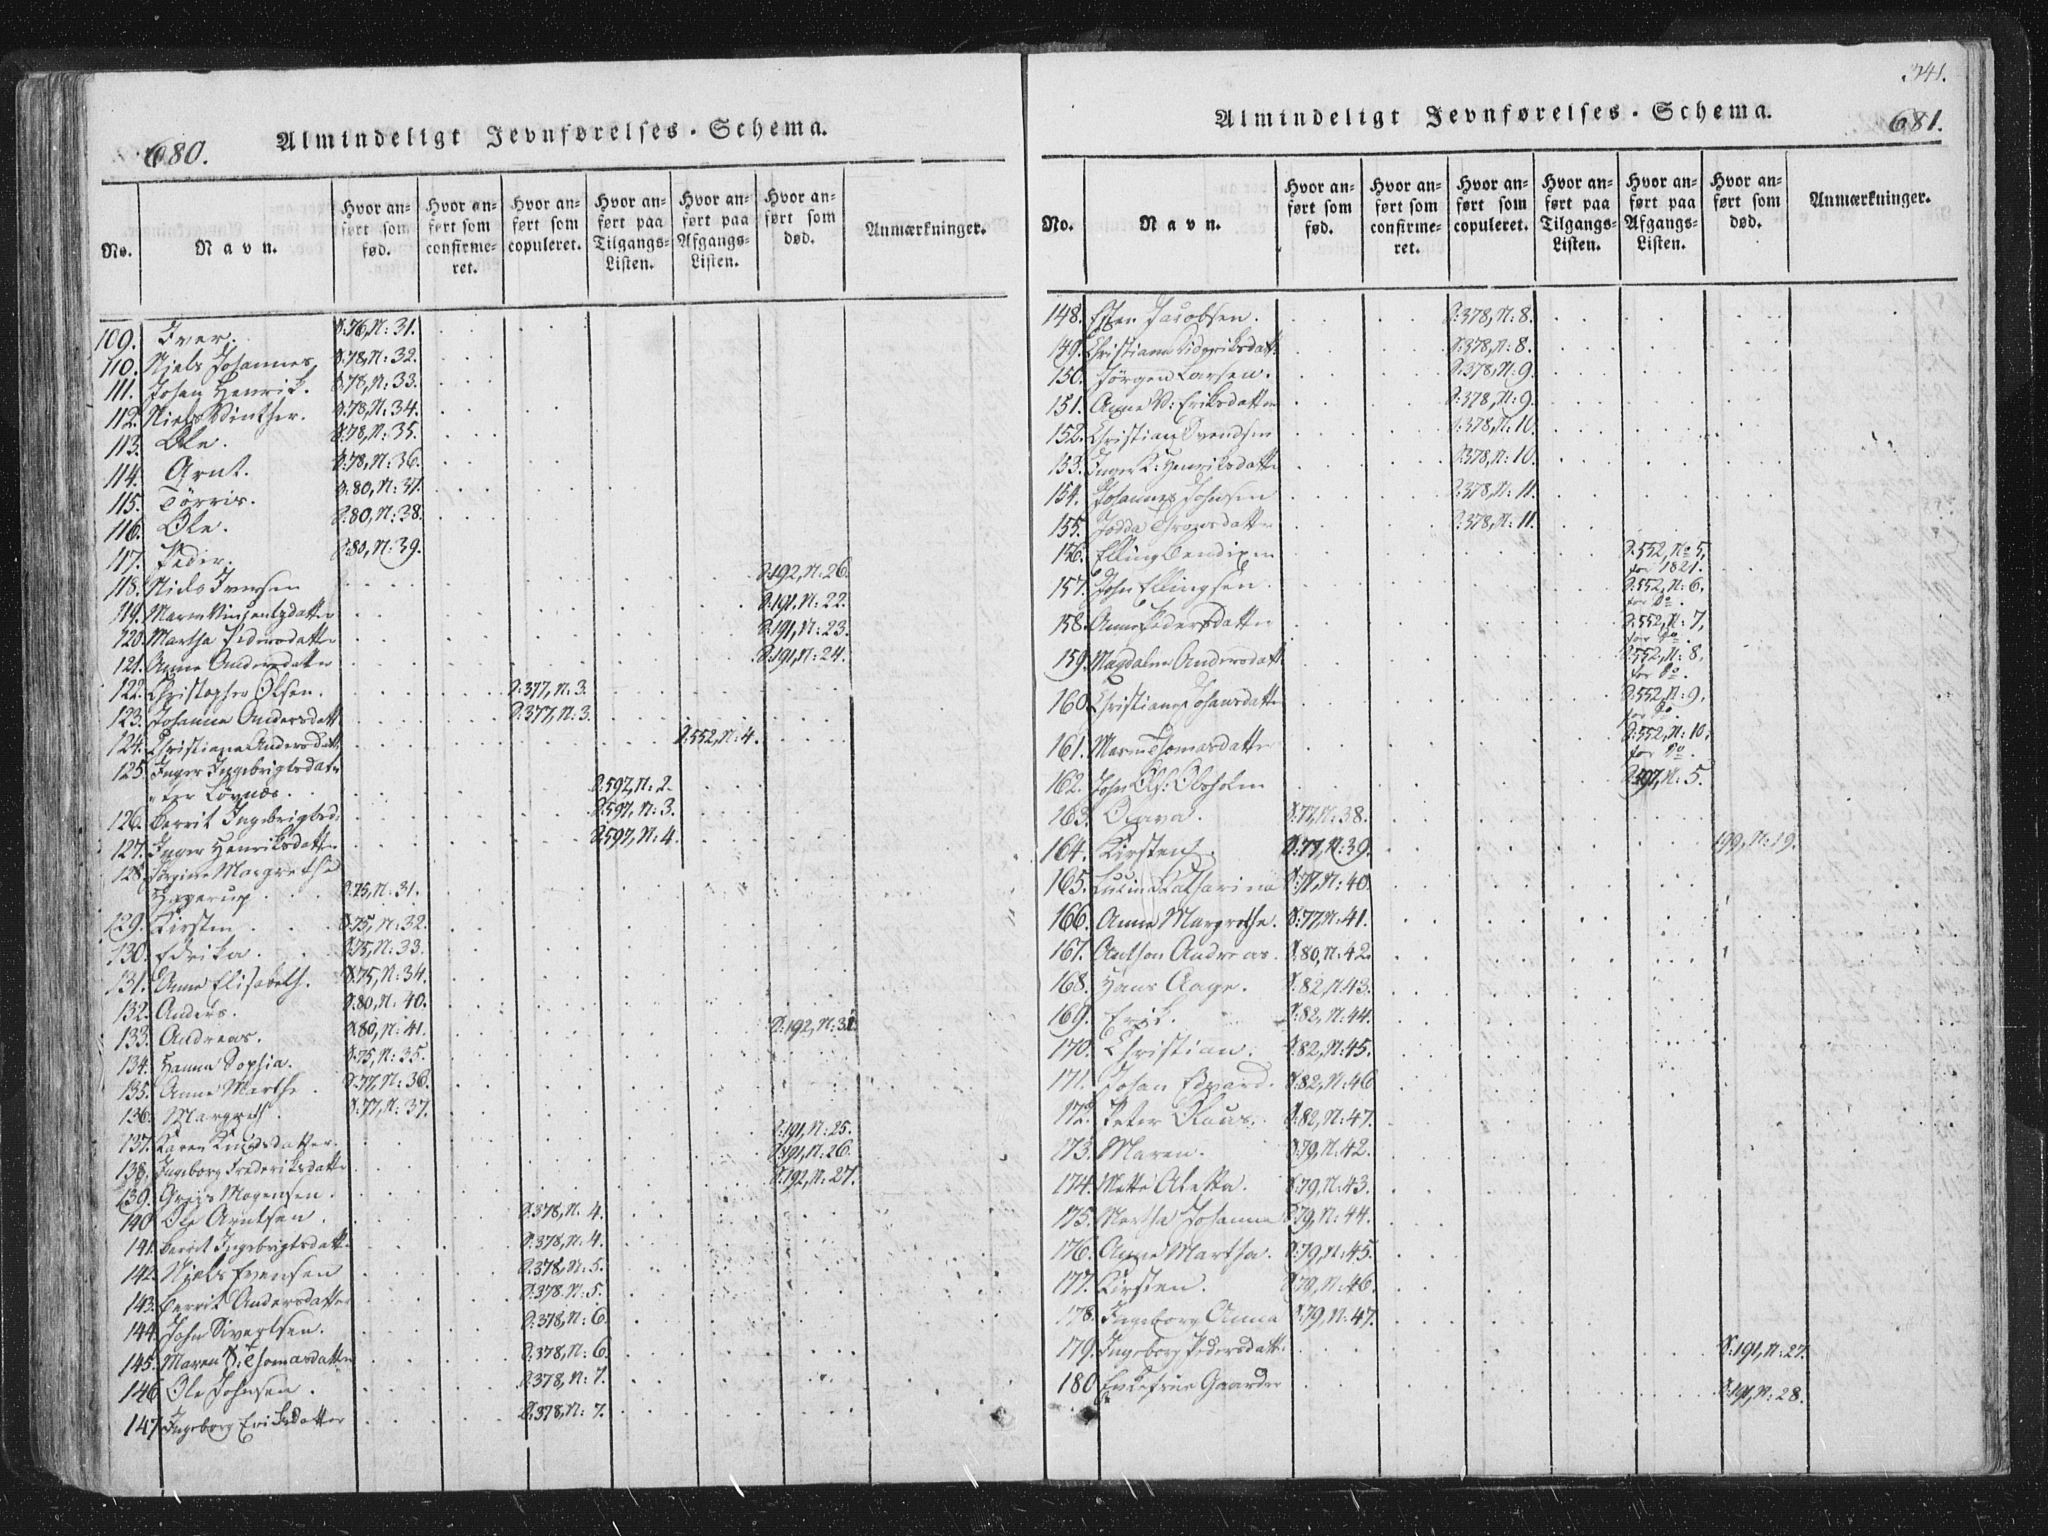 680.
Almindeligt Jevnførelses-Schema.
No.
Navn.
Hvor anført som fød.
Hvor anført som confirmeret.
Hvor anført som copuleret.
Hvor anført paa Tilgangs-Listen.
Hvor anført paa Afgangs-Listen.
Hvor anført som død.
Anmærkninger.
109. Iver. P:76, N:31.
110. Niels Johannes P:78, N:32.
111. Johan Henrik. P:78, N:33.
112. Niels Winther. P:78, N:34.
113. Ole. P:78, N:35.
114. Arnt. P:78, N:36.
115. Törris. P:80, N:37.
116. Ole. P:80, N:38.
117. Peder. P:80, N:39.
118. Niels Iversen P:192, N:26.
119. Maren P:191, N:22.
120. Martha Pedersdatter P:191, N:23.
121. Anne Andersdatter P:191, N:24.
122. Christopher Olsen. P:377, N:3.
123. Johanna Andersdatt P:377, N:3.
124. Christiana Andersdatt P:552, N:4.
125. Inger Ingebrigtsdat-
ter Lövnæs. P:597, N:2.
126. Berrit Ingebrigtsd: P:597, N:3.
127. Inger Henriksdatter P:597, N:4.
128. Margrethe
Hagerup P:75, N:31.
129. Kirsten P:75, N:32.
130. Edrika. P:75, N:33.
131. Anne Elisabeth. P:75, N:34.
132. Anders. P:80, N:40.
133. Andreas. P:80, N:41. P:192, N:31.
134. Hanna Sophia. P:75, N:35.
135. Anne Merthe P:77, N:36.
136. Margreth. P:77, N:37.
137. Karen Knudsdatter. P:191, N:25.
138. Ingeborg Frederiksdatter P:191, N:26.
139. Greis Mogensen. P:192, N:27.
140. Ole Arntsen. P:378, N:4.
141. Berrit Ingebrigtsdatt P:378, N:4.
142. Niels Evensen P:378, N:5.
143. Berrit Andersdatter P:378, N:5.
144. John Sivertsen. P:378, N:6.
145. Maren Thomasdatter P:378, N:6.
146. Ole Johnsen. P:378, N:7.
147. Ingeborg Eriksdatter P:378, N:7.
341.
Almindeligt Jevnførelses-Schema.
681.
No.
Navn.
Hvor anført som fød.
Hvor anført som confirmeret.
Hvor anført som copuleret.
Hvor anført paa Tilgangs-Listen.
Hvor anført paa Afgangs-Listen.
Hvor anført som død.
Anmærkninger.
148. Jacobsen. P:378, N:8.
149. Christiana P:378, N:8.
150. Jörgen Larsen. P:378, N:9.
151. Anne Eriksdatter P:378, N:9.
152. Christian Svendsen P:378, N:10.
153. Inger K: Henriksdatter P:378, N:10.
154. Johannes Johnsen P:378, N:11.
155. P:378, N:11.
156. Elling Bendixen P:552, No 5,
for 1821.
157. John Ellingsen. P:552, N:6,
for Do.
158. Anne Pedersdatter P:552, N:7,
for Do.
159. Magdalena Andersdatt P:552, N:8,
for Do.
160. Christiane Johansdatter P:552, N:9,
for Do.
161. Maren Thomasdatter P:552, N:10,
for Do.
162. John P:497, N:5.
163. Olava. P:77, N:38.
164. Kirsten. P:77, N:39. 199, N:19.
165. Catharina P:77, N:40.
166. Anne Margrethe. P:77, N:41.
167. Anthon Andreas. P:80, N:42.
168. Hans Aage. P:82, N:43.
169. Erik. P:82, N:44.
170. Christian. P:82, N:45.
171. Johan Edvard. P:82, N:46
172. Peter Olaus. P:82, N:47.
173. Maren. P:79, N:42.
174. Mette P:79, N:43.
175. Martha Johanna P:79, N:44.
176. Anne Martha. P:79, N:45.
177. Kirsten. P:79, N:46.
178. Ingeborg Anna P:79, N:47.
179. Ingeborg Pedersdatt. P:191, N:27.
180. Gaarder P:191, N:28.